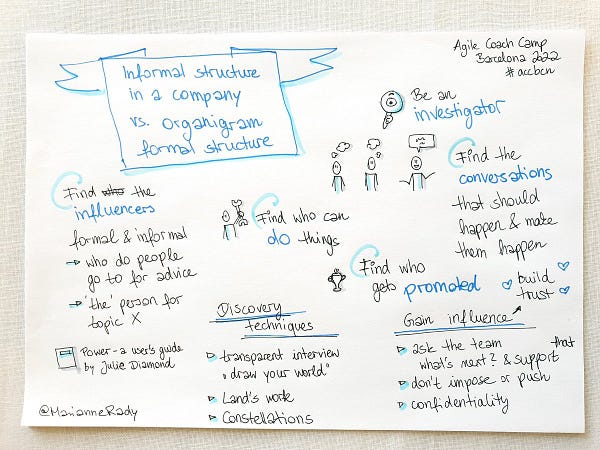 Informal structure
in a company
vs. organigram
formal structure
Agile Coach Camp
Barcelona 2022
#accbcn
Be an
investigator
Find who the
influencers
formal & informal
→ who do people
go to for advice
→ 'the' person for
topic X
Power - a user's guide
by Julie Diamond
Find who can
do things
Find the
conversations
that should
happen & make
them happen
Find who
gets promoted
build
trust
Discovery
techniques
transparent interview
"draw your world"
Land's work
Constellations
Gain influence
ask the team
what's next? & support that
don't impose or push
confidentiality
@MarianneRady